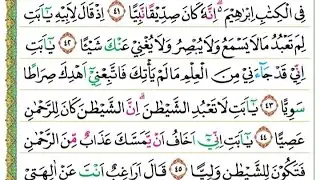 فِى الْكِتٰبِ اِبْرٰهِيْمَ ەۗ اِنَّهٗ كَانَ صِدِّيْقًا نَّبِيًّا ٤١ اِذْ قَالَ لِاَبِيْهِ يٰٓاَبَتِ
لِمَ تَعْبُدُ مَا لَا يَسْمَعُ وَلَا يُبْصِرُ وَلَا يُغْنِيْ عَنْكَ شَيْـًٔا ٤٢ يٰٓاَبَتِ
اِنِّيْ قَدْ جَاۤءَنِيْ مِنَ الْعِلْمِ مَا لَمْ يَأْتِكَ فَاتَّبِعْنِيْٓ اَهْدِكَ صِرَاطًا
سَوِيًّا ٤٣ يٰٓاَبَتِ لَا تَعْبُدِ الشَّيْطٰنَۗ اِنَّ الشَّيْطٰنَ كَانَ لِلرَّحْمٰنِ
عَصِيًّا ٤٤ يٰٓاَبَتِ اِنِّيْٓ اَخَافُ اَنْ يَّمَسَّكَ عَذَابٌ مِّنَ الرَّحْمٰنِ
فَتَكُوْنَ لِلشَّيْطٰنِ وَلِيًّا ٤٥ قَالَ اَرَاغِبٌ اَنْتَ عَنْ اٰلِهَتِيْ